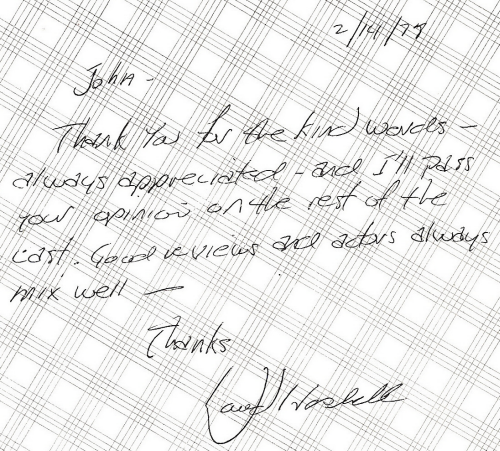 2/14/79
John -
Thank You for the kind words -
always appreciated - and I'll pass
your opinion on the rest of the
cast. Good reviews and actors always
mix well —
Thanks